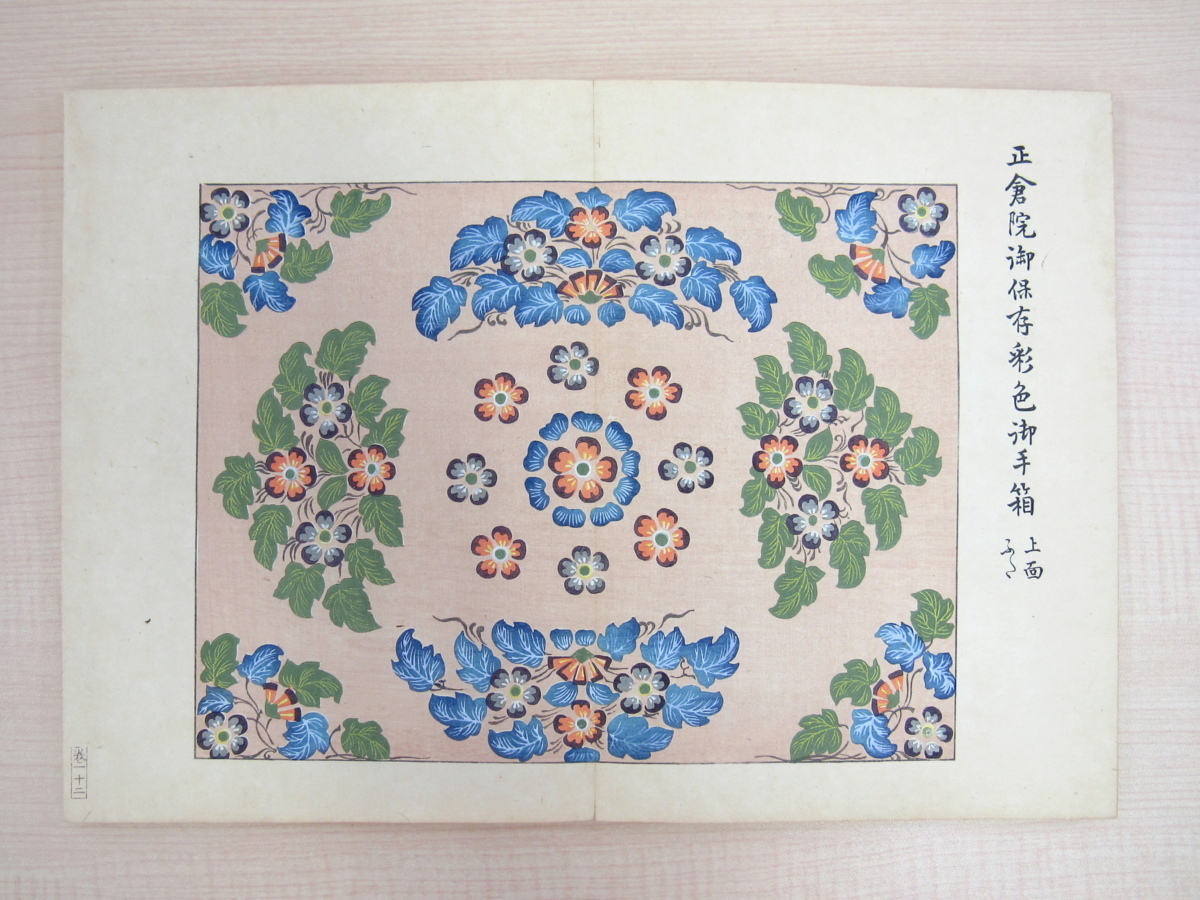 正倉院御保存彩色御手箱
上面
ふた
一十二